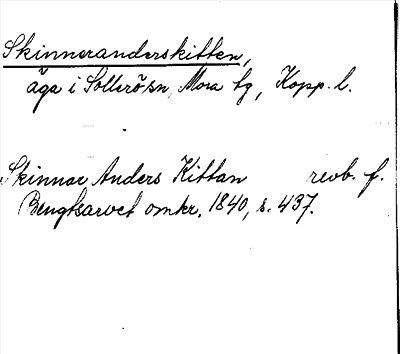 Skinneranderskitten,
äga i Sollerösn, Mora tg, Kopp. l.
Skinnar Anders Kittan revb. f.
Bengtsarvet omkr. 1840, s. 437.